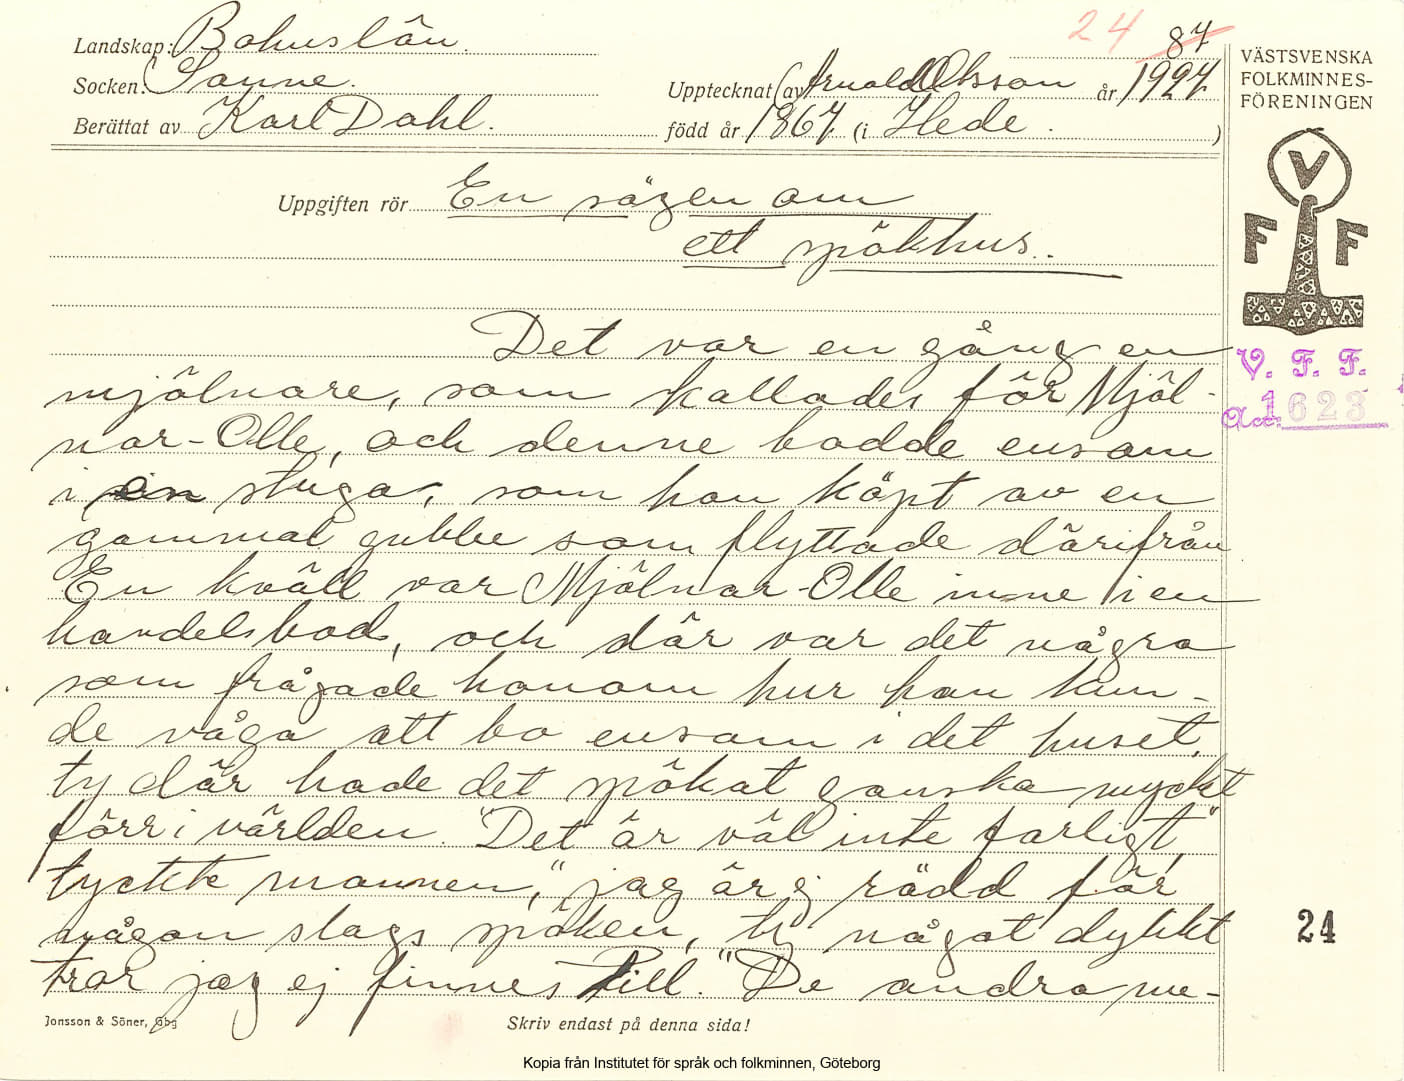 24 87
Landskap: Bohuslän.
Socken: Sanne.
Upptecknat av Arnold Olsson år 1927
Berättat av Karl Dahl.
född år 1867 (i Hede.)
VÄSTSVENSKA
FOLKMINNES-
FÖRENINGEN
V
F F
Uppgiften rör En sägen om
ett spökhus.
V. F. F.
Acc. 1623
Det var en gång en
mjölnare, som kallades för Mjöl-
nar-Olle, och denne bodde ensam
i en stuga, som han köpt av en
gammal gubbe som flyttade därifrån
En kväll var Mjölnar-Olle inne i en
handelsbod, och där var det några
som frågade honom hur han kun-
de våga att bo ensam i det huset,
ty där hade det spökat ganska mycket
förr i världen. "Det är väl inte farligt,"
tyckte mannen, "jag är ej rädd för
någon slags spöken, ty något dylikt
tror jag ej finnes till." De andra me-
24
Jonsson & Söner, Gbg
Skriv endast på denna sida!
Kopia från Institutet för språk och folkminnen, Göteborg